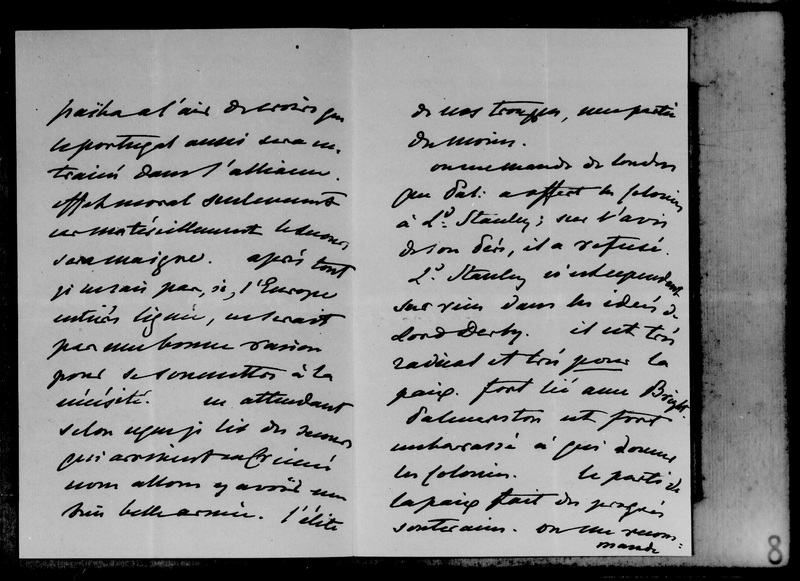 pacha a l'air de croire que
le portugal aussi sera en-
trainé dans l'alliance.
effet moral seulement
car matériellement le secours
sera maigre. après tout
je ne sais pas, si, l'Europe
entière liguée, ce serait
pas une bonne raison
pour se soumettre à la
nécésité. en attendant
selon ce que je lis des secours
qui arrivent en Crimée
nous allons y avoir une
très belle armée. l'élite
de nos troupes, une partie
du moins.
on me mande de Londres
que Pal: a offert les Colonies
à Ld. Stanley; sur l'avis
de son Père, il a refusé.
Ld. Stanley est indépendant
sur rien dans les ideés de
Lord Derby. il est très
radical et très pour la
paix. fort lié avec Bright.
Palmerston est fort
embarassé à qui donner
les Colonies. le parti de
la paix fait des progrès
souterains. on me recom=
mande
8